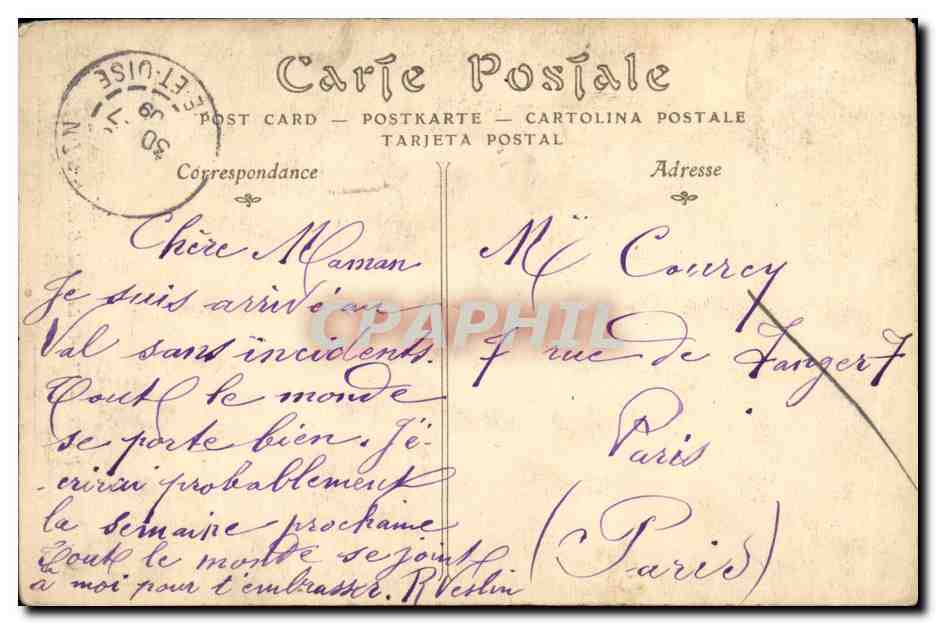 Carte Postale
POST CARD — POSTKARTE — CARTOLINA POSTALE
TARJETA POSTAL
Correspondance
Adresse
E-ET-OISE
30
Chère Maman
Je suis arrivé au
Val sans incidents.
Tout le monde
se porte bien. J'é-
crirai probablement
la semaine prochaine
Tout le monde se joint
à moi pour t'embrasser. R
Courcy
7 rue de Tanger 7
Paris
(Paris)
CPAPHIL